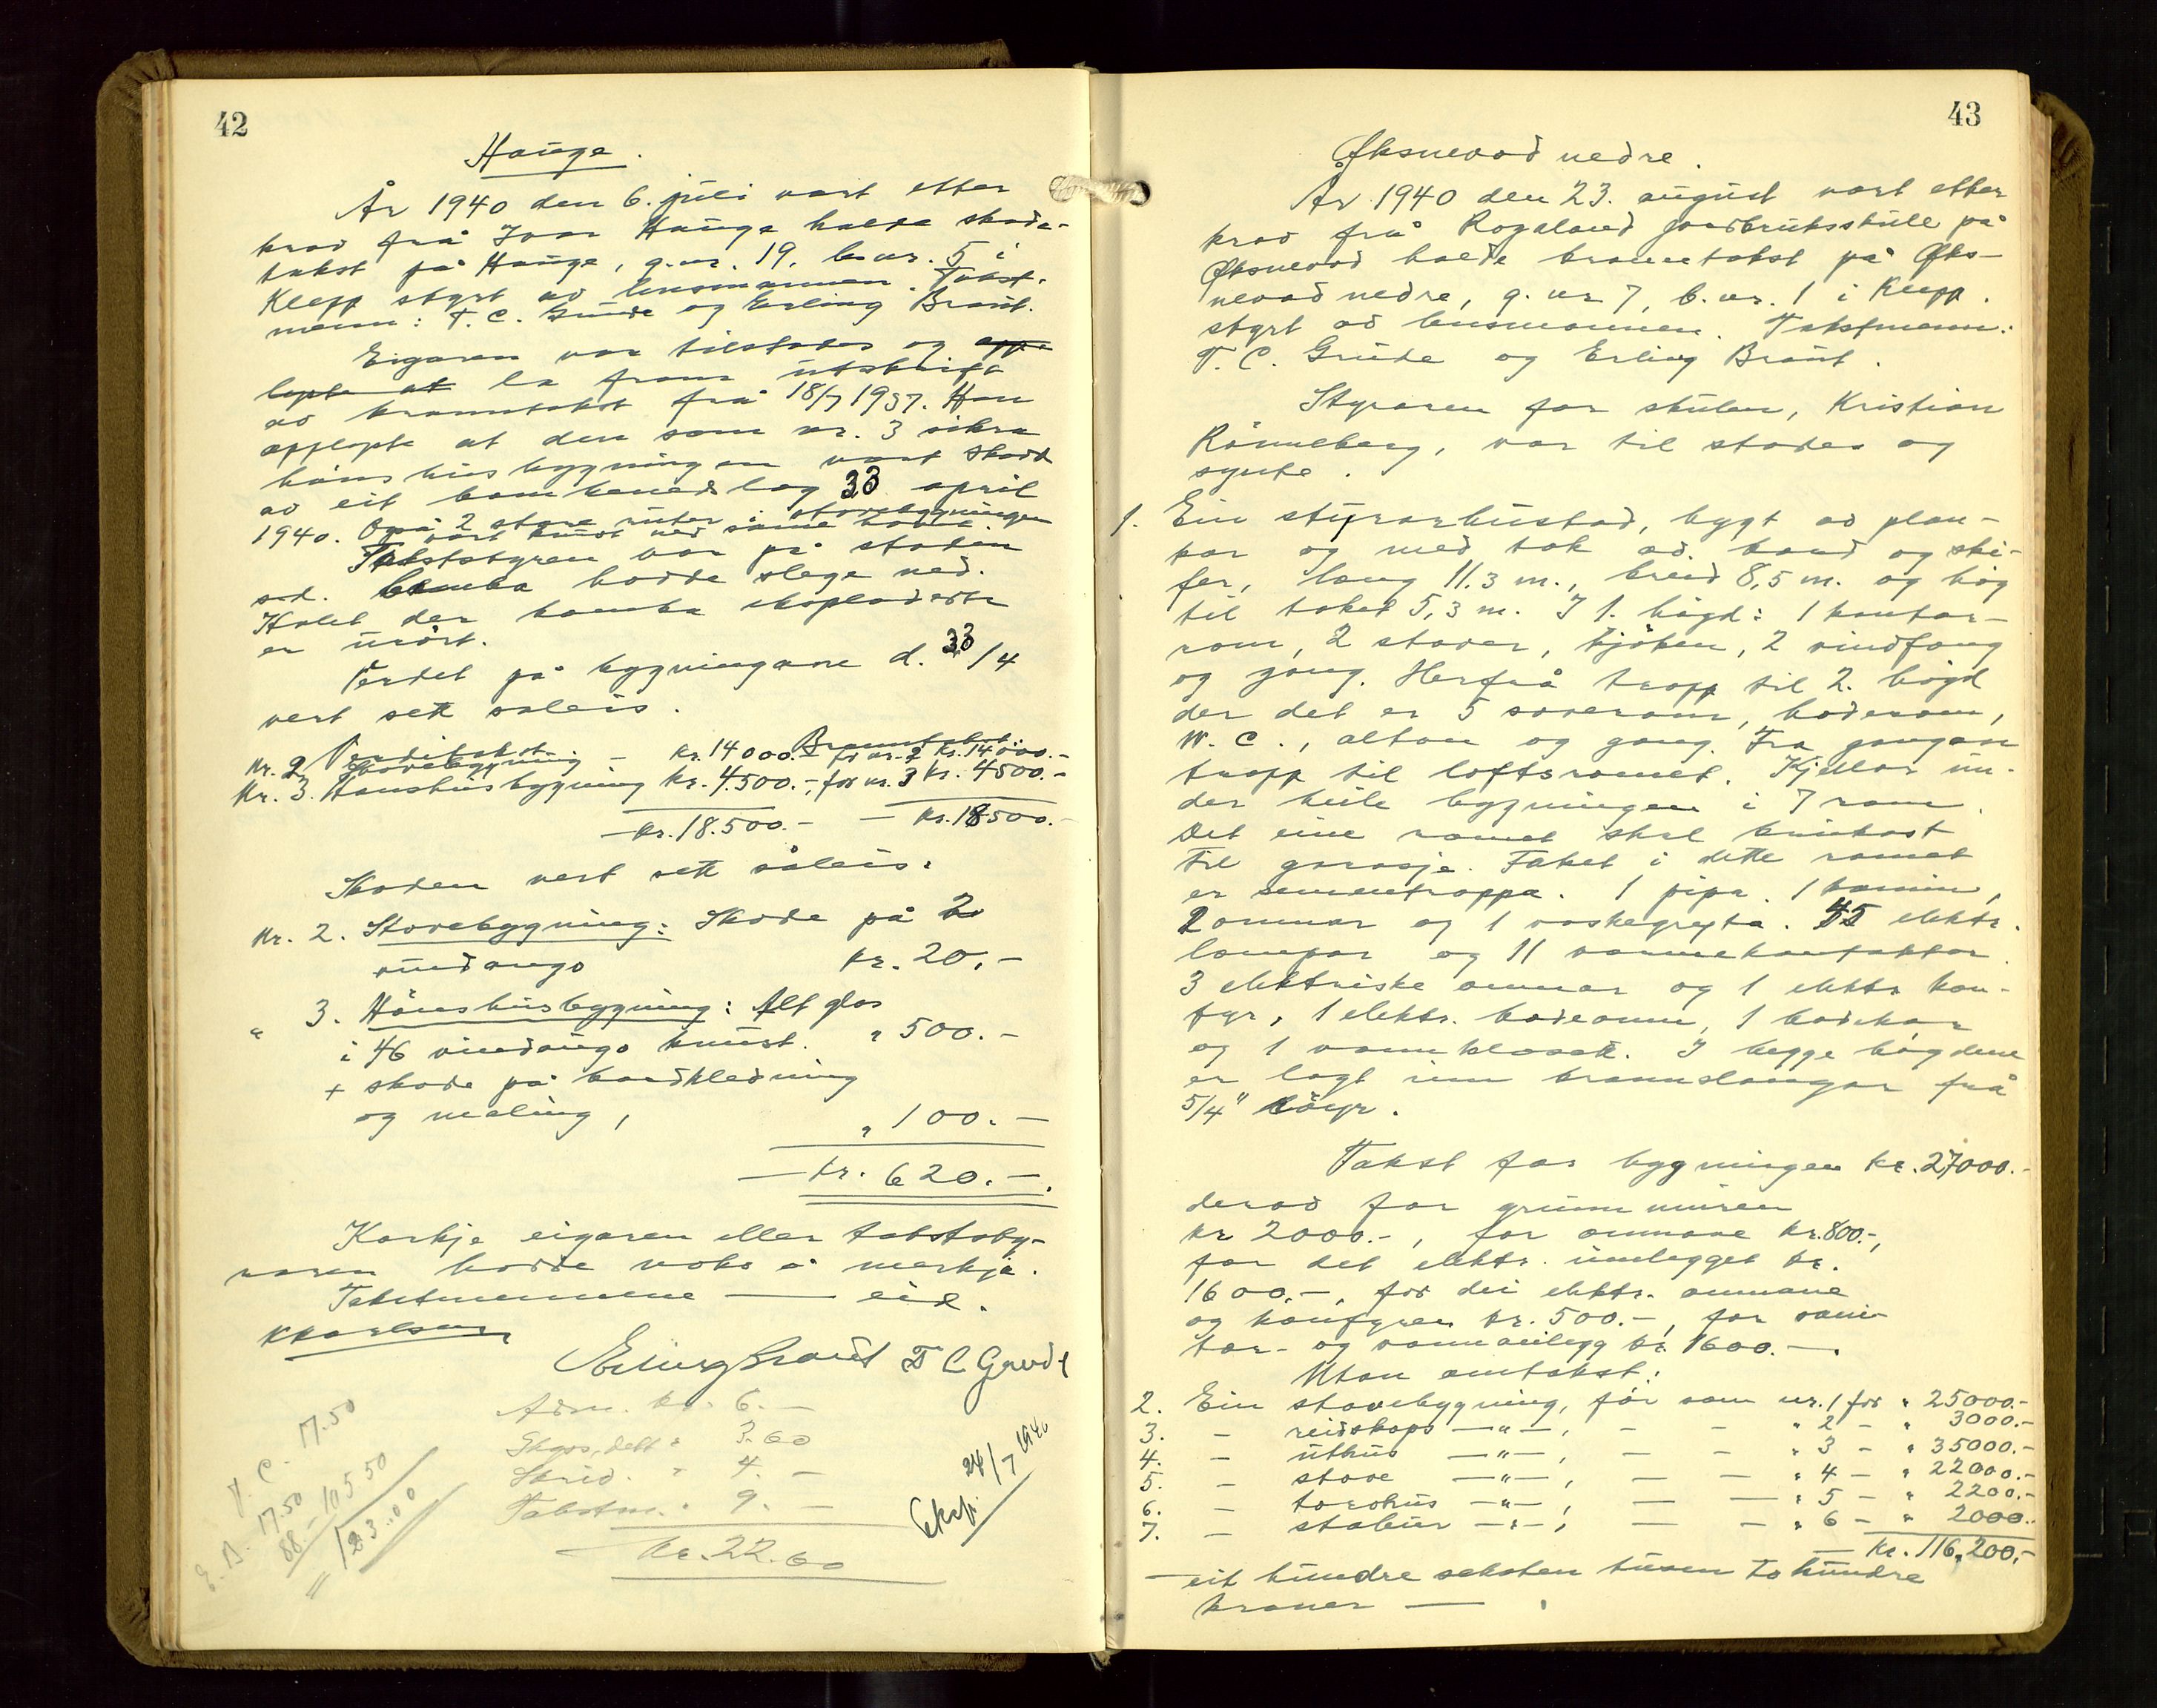 42
Hauge.
År 1940 den 6. juli vart etter
krav frå Ivar Hauge halde skade-
takst på Hauge, g.nr. 19, b.nr. 5 i
Klepp styrt av lensmannen. Takst-
menn: T. C. Grude og Erling Braut.
Eigaren var tilstades og opp-
lyste at la fram utskrift
av branntakst frå 18/7 1937. Han
opplyste at den som nr. 3 sikra
hønshusbygningen vart skadd
av eit bombenedslag 23 april
1940. Også 2 store ruter i stovebygningen
vart knust ved same høve.
Takststyren var på staden
der bomba hadde slege ned.
Holet der bomba eksploderte
er urørt.
Verdet på bygningane d. 23/4
vert sett soleis.
Verditakst. Branntakst:
Nr. 2 Stovebygning - kr. 14000.- for nr. 2 kr. 14000.-
Nr. 3. Hønshusbygning kr. 4.500.-, for nr. 3 kr. 4500.-
— kr. 18.500.- — kr. 18500.-
Skaden vert sett såleis:
Nr. 2. Stovebygning: Skade på 2
vindaugo kr. 20,-
" 3. Hönshusbygning: Alt glas
i 46 vindaugo knust. " 500.-
+ skade på bordkledning
og maling, " 100.-
— kr. 620.-.
Korkje eigaren eller takstsby-
raren hadde noko å merkja.
Takstmennene — eid.
KKarlsen
Erling Braut T C Grude
Adm. kr. 6.-
Skyss, dett " 3.60
Skriv. " 4.-
Takstm. " 9.-
kr. 22.60
Eksp. 24/7 1940
T. C. 17.50
E. B. 17.50
88 - 105 50
123..00
43
Øksnevad nedre.
År 1940 den 23. august vart etter
krav frå Rogaland jordbruksskule på
Øksnevad halde branntakst på Øks-
nevad nedre, g.nr 7, b.nr. 1 i Klepp.
styrt av lensmannen. Takstmenn:
T. C. Grude og Erling Braut.
Styraren for skulen, Kristian
Rönneberg, var til stades og
synte.
1. Ein styrarbustad, bygt av plan-
kar og med tak av bord og ski-
fer, lang 11.3 m., breid 8,5 m. og høg
til taket 5,3 m. I 1. högd: 1 kontor-
rom, 2 stover, kjöken, 2 vindfang
og gang. Herfrå tropp til 2. högd
der det er 5 soverom, baderom,
W. C., altan og gang. Frå gangen
tropp til loftsromet. Kjellar un-
der heile bygningen i 7 rom.
Det eine romet skal brukast
til garasje. Taket i dette romet
er sementrappa. 1 pipa. 1 kamin,
2 omnar og 1 vaskegryta. 45 elektr.
lampor og 11 varmekontaktar.
3 elektriske omnar og 1 elektr kom-
fyr, 1 elektr. badeomn, 1 badekar
og 1 vannklosett. I begge högdene
er lagt inn brannslangar frå
5/4" röyr.
Takst for bygningen kr. 27000.-
derav for grunnmuren
kr 2000.-, for omnane kr. 800.-,
for det elektr. innlegget kr.
1600.-, for dei elektr. omnane
og komfyren kr. 500.-, for sani-
tær- og vannanlegg kr. 1600.-.
Utan omtakst:
2. Ein stovebygning, för som nr. 1 for " 25000.-
3. - reidskaps —"—, - - " 2 - " 3000.-
4. - uthus —"—, - - " 3 - " 35000.-
5. - stove —"—, - - " 4 - " 22000.-
6. - torvhus —"—, - - " 5 - " 2200.-
7. - stabur —"—, - - " 6 - " 2000.-
— kr. 116,200.-
— eit hundre seksten tusen to hundre
kroner — .